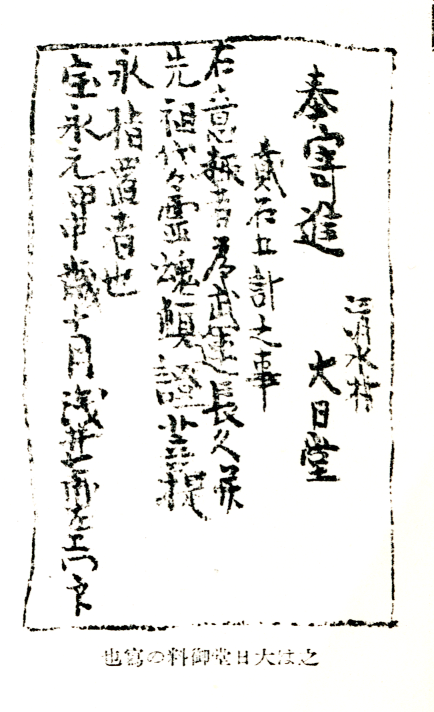 奉寄進
江明水村
大日堂
貮石五計之事
右意趣者為武運長久并
先祖代々霊魂頓證菩提
永指置者也
宝永元甲申歳十月浅井 左衛門
之は大日堂御料の寫也